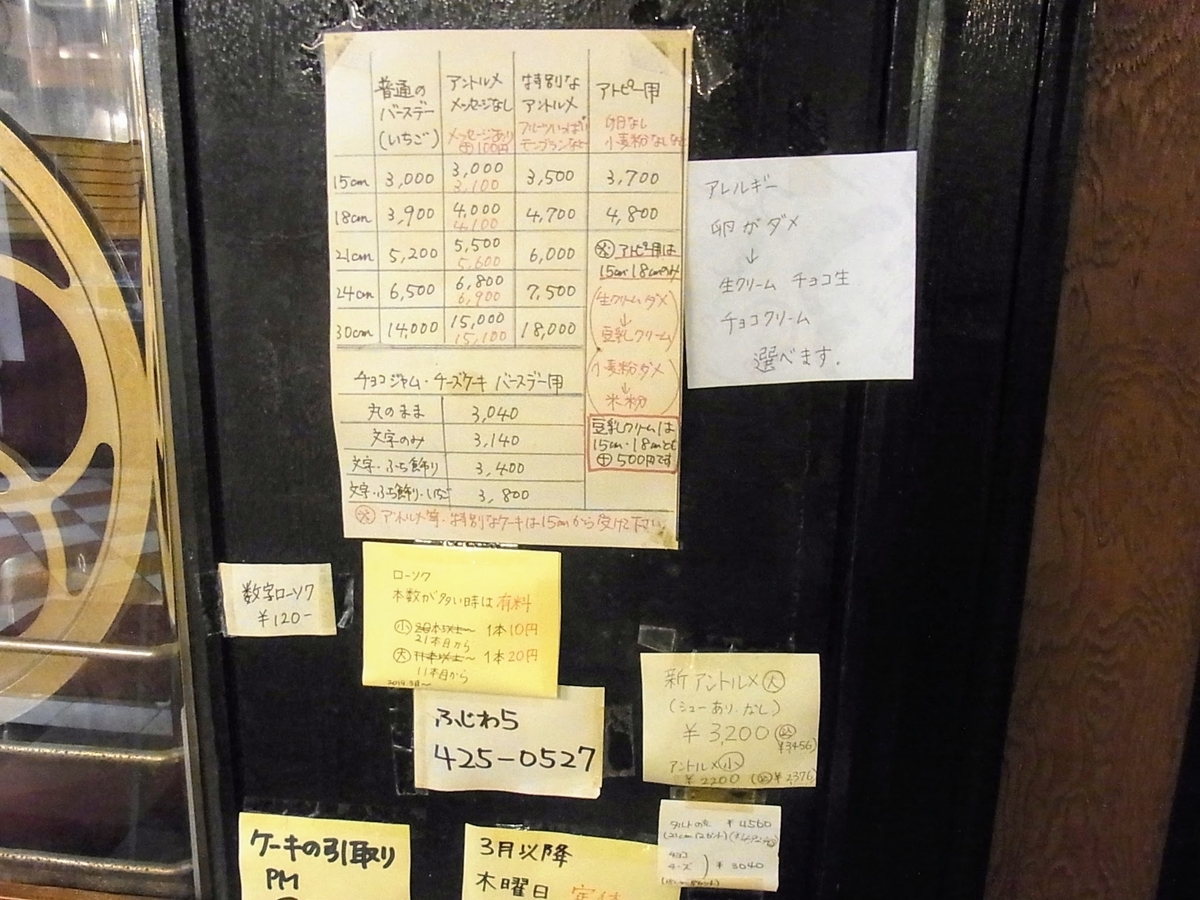 普通の
バースデー
(いちご)
アントルメ
メッセージなし
メッセージあり
㊉100円
特別な
アントルメ
フルーツいっぱい
モンブランなど
アトピー用
卵なし
小麦粉なしなど
15cm 3,000 3,000 3,100 3,500 3,700
18cm 3,900 4,000 4,100 4,700 4,800
21cm 5,200 5,500 5,600 6,000
24cm 6,500 6,800 6,900 7,500
30cm 14,000 15,000 15,100 18,000
※アトピー用は
15cm 18cmのみ
生クリームダメ
↓
豆乳クリーム
小麦粉ダメ
↓
米粉
豆乳クリームは
15cm・18cmとも
㊉500円です
チョコジャム・チーズケーキ バースデー用
丸のまま 3,040
文字のみ 3,140
文字・ふち飾り 3,400
文字・ふち飾り・いちご 3,800
※アントルメ等・特別なケーキは15cmから受けて下さい
アレルギー
卵がダメ
↓
生クリーム チョコ生
チョコクリーム
選べます.
数字ローソク
¥120-
ローソク
本数が多い時は有料
小 20本以上~ 1本10円
21本目から
大 11本以上~ 1本20円
11本目から
ふじわら
425-0527
新アントルメ大
(シューあり.なし)
¥3,200
¥3456
アントルメ小
¥2200 (¥2376)
¥4560
チョコ
チーズ ) ¥3040
ケーキの引取り
PM
3月以降
木曜日 定休